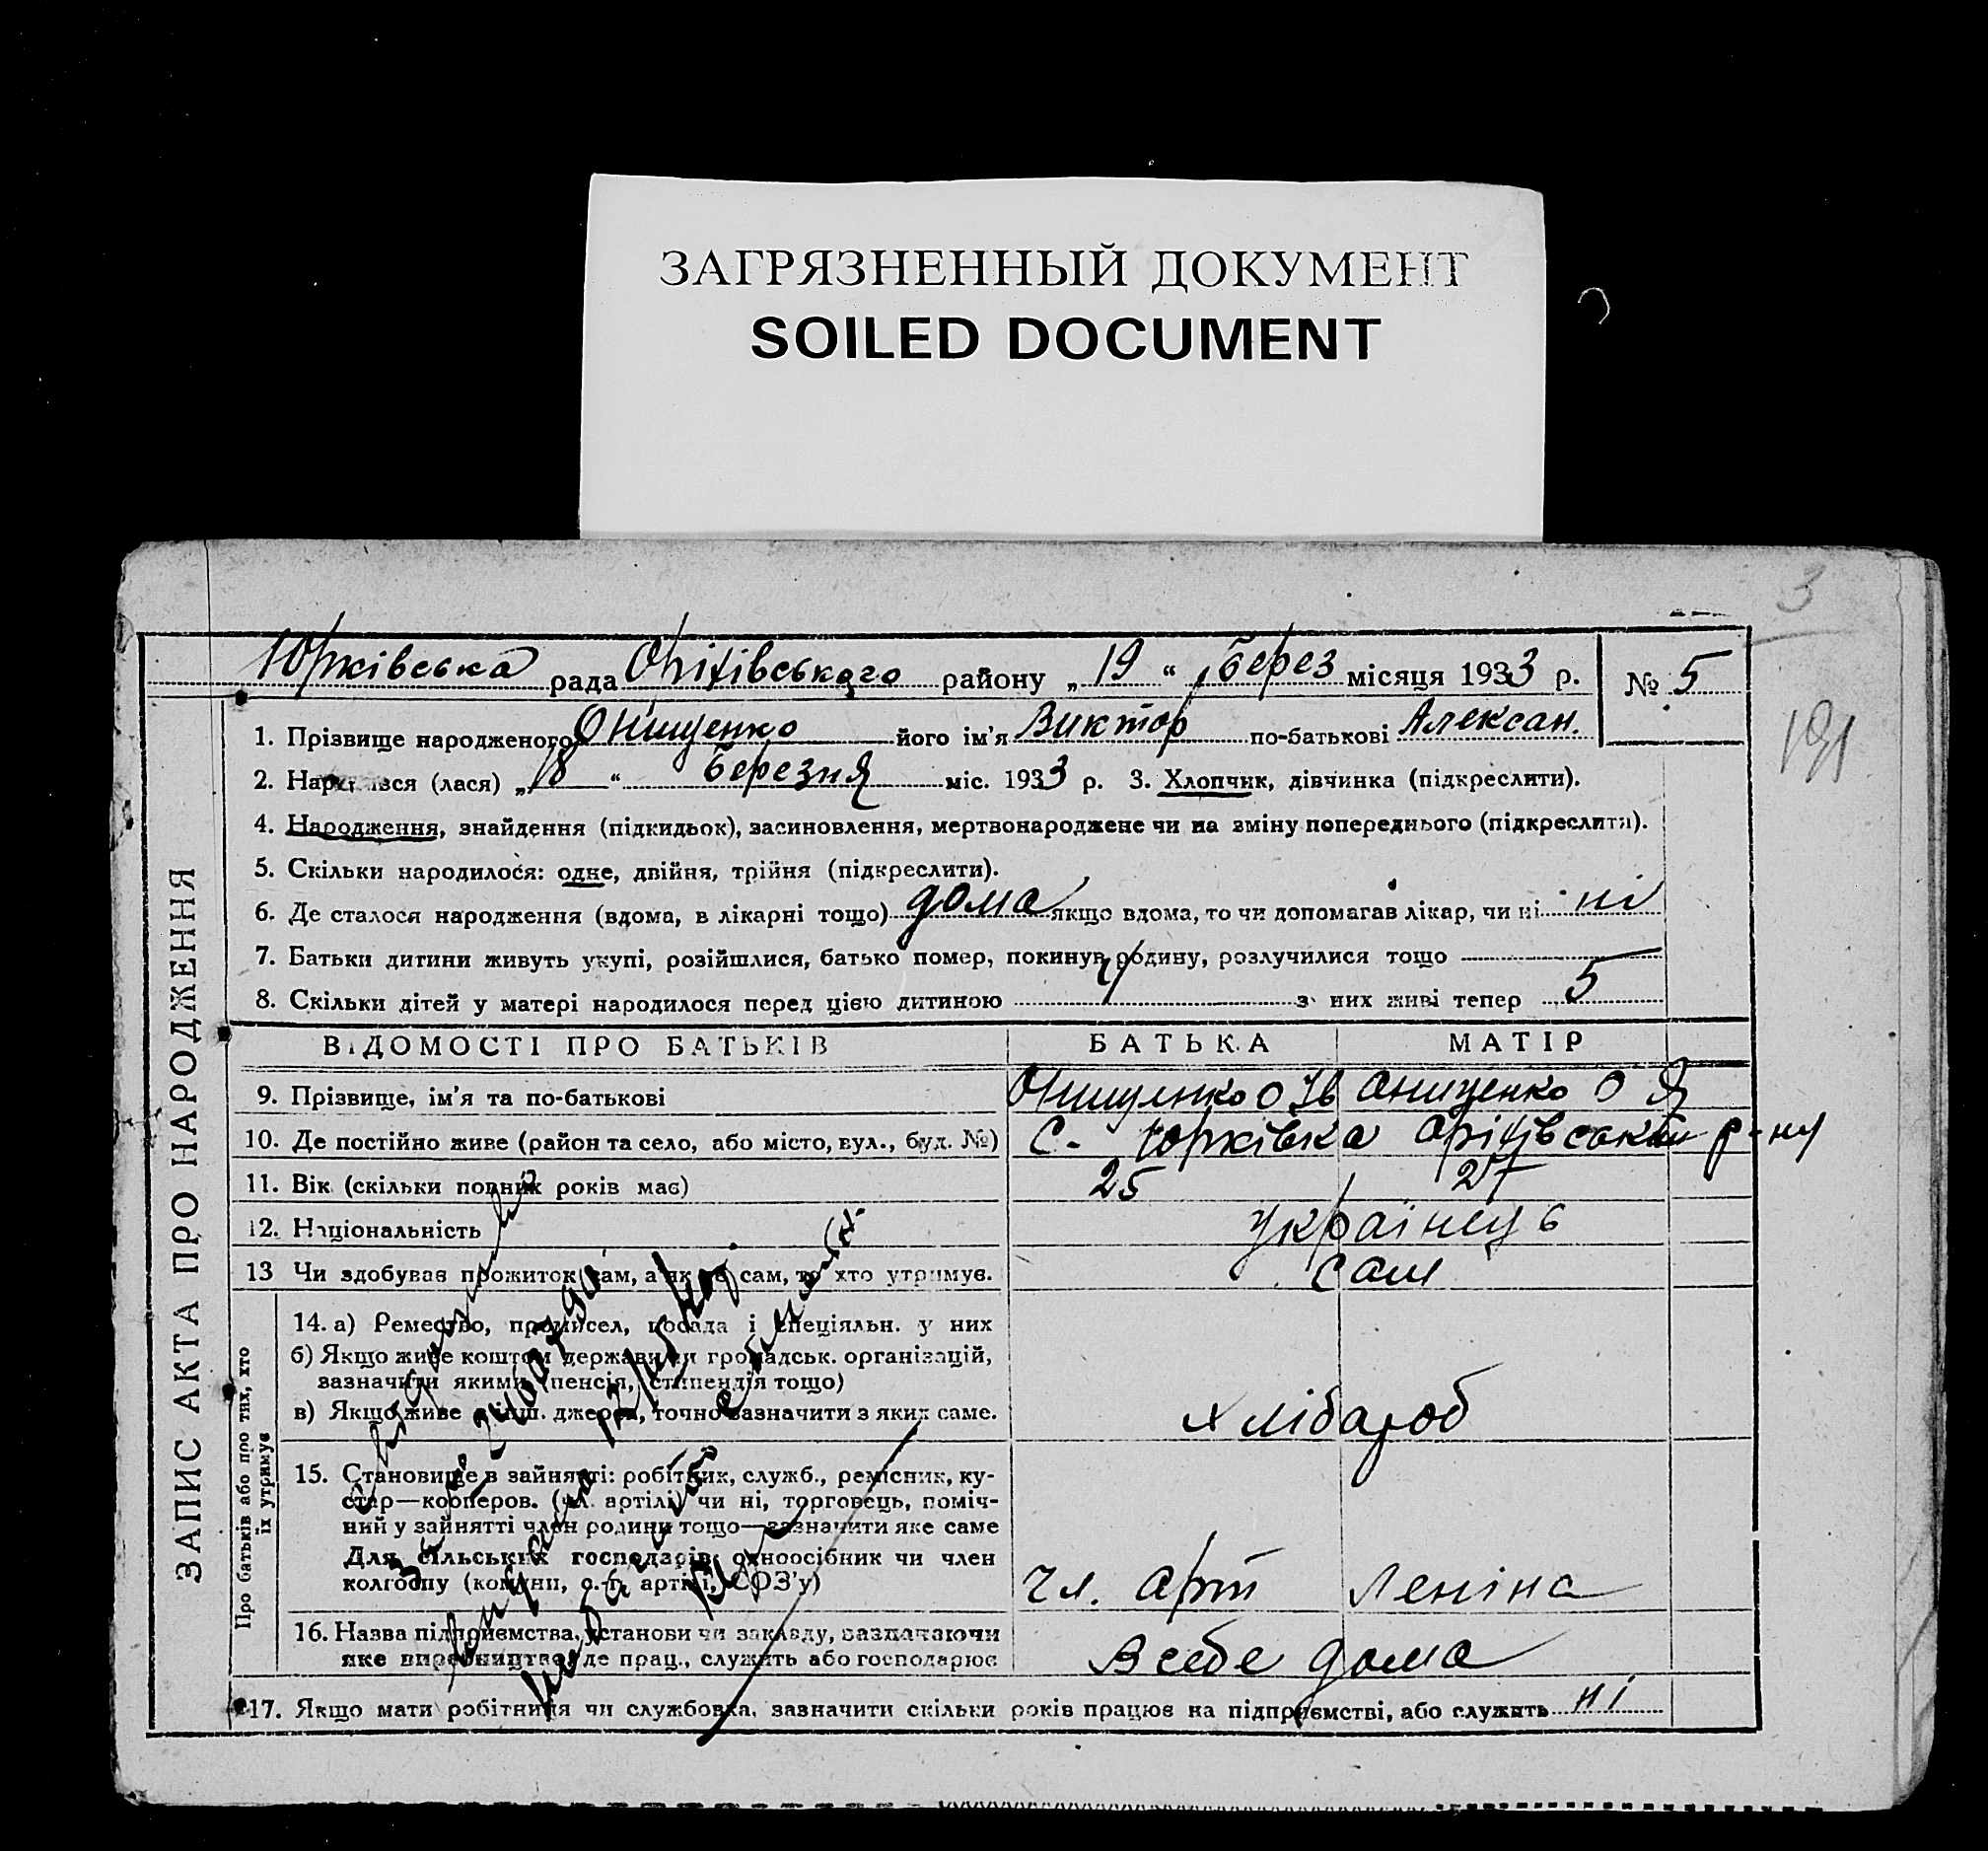 ЗАГРЯЗНЕННЫЙ ДОКУМЕНТ
SOILED DOCUMENT
3
Юрківська рада Оріхівського району „19“ Берез місяця 1933 р. № 5
191
1. Прізвище народженого Онищенко його ім'я Виктор по-батькові Алексан.
2. Народився (лася) „18“ Березня міс. 1933 р. 3. Хлопчик, дівчинка (підкреслити).
4. Народження, знайдення (підкидьок), засиновлення, мертвонароджене чи на зміну попереднього (підкреслити).
5. Скільки народилося: одне, двійня, трійня (підкреслити).
6. Де сталося народження (вдома, в лікарні тощо) дома якщо вдома, то чи допомагав лікар, чи ні ні
7. Батьки дитини живуть укупі, розійшлися, батько помер, покинув родину, розлучилися тощо
8. Скільки дітей у матері народилося перед цією дитиною 4 з них живі тепер 5
ЗАПИС АКТА ПРО НАРОДЖЕННЯ
ВІДОМОСТІ ПРО БАТЬКІВ БАТЬКА МАТІР
9. Прізвище, ім'я та по-батькові Онищенко О Ів Онищенко О Я
10. Де постійно живе (район та село, або місто, вул., буд. №) С- Юрківка Оріхівський р-ну
11. Вік (скільки повних років має) 25 27
12. Національність українець
13 Чи здобував прожиток сам, а як не сам, то хто утримує. сам
Про батьків або про тих, хто їх утримує
14. а) Ремество, промисел, посада і спеціяльн. у них
б) Якщо живе коштом держави чи громадськ. організацій,
зазначити якими (пенсія, стипендія тощо)
в) Якщо живе з інш. джерел, точно зазначити з яких саме. хлібароб
15. Становище в зайнятті: робітник, служб., ремісник, ку-
стар—кооперов. (чл. артілі) чи ні, торговець, поміч-
ний у зайнятті член родини тощо—зазначити яке саме
Для сільських господарів: одноосібник чи член
колгоспу (комуни, с.-г. артілі, СОЗ'у) чл. арт Леніна
16. Назва підприємства, установи чи закладу, зазначаючи
яке виробництво, де прац., служить або господарює Всебе дома
17. Якщо мати робітниця чи службовка, зазначити скільки років працює на підприємстві, або служить ні